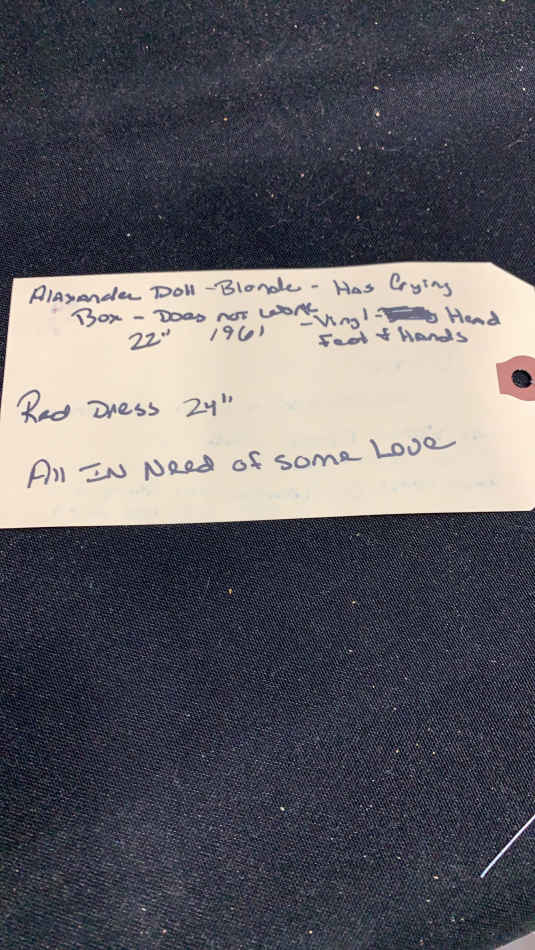 Alexander Doll - Blonde - Has Crying
Box - Does not work - Vinyl - Head
22" 1961 Feet & Hands
Red Dress 24"
All IN Need of some Love